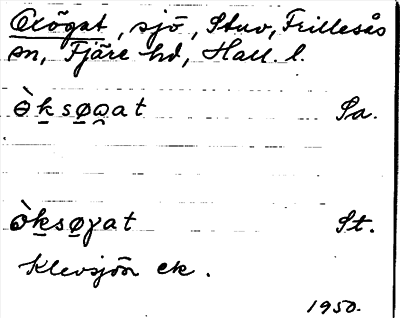 Oxögat, sjö, Stuv, Frillesås
sn, Fjäre hd, Hall. l.
ɵ̀ḵsø̱ɷ̯at Sa.
ɔ̀ḵsø̱ɣat St.
Klevsjön ek.
1950.